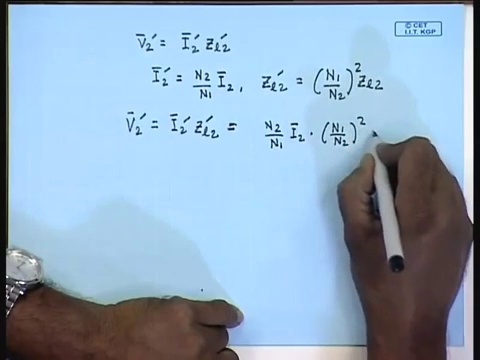 © CET
I.I.T. KGP
V̄₂′ = Ī₂′ Z_ℓ₂′
Ī₂′ = N₂/N₁ Ī₂, Z_ℓ₂′ = (N₁/N₂)² Z_ℓ₂
V̄₂′ = Ī₂′ Z_ℓ₂′ = N₂/N₁ Ī₂ · (N₁/N₂)²